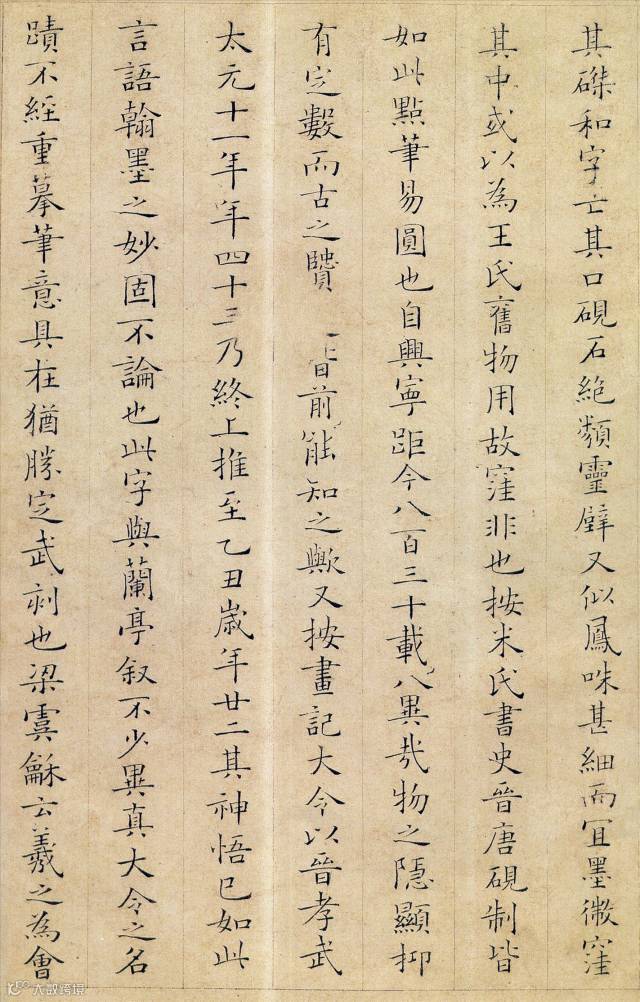 其磔和字亡其口硯石絶類靈璧又似鳳咮甚細而宜墨微窪
其中或以為王氏舊物用故窪非也按米氏書史晉唐硯制皆
如此點筆易圓也自興寧距今八百三十載八異哉物之隱顯抑
有定數而古之前能知之歟又按畫記大令以晉孝武
太元十一年年四十三乃終上推至乙丑歲年廿二其神悟已如此
言語翰墨之妙固不論也此字與蘭亭叙不少異真大令之名
蹟不經重摹筆意具在猶勝定武刻也梁虞龢云羲之為會
大数跨境